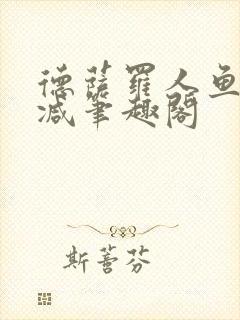 德薩羅人魚
減筆趣閣
斯蕾芬